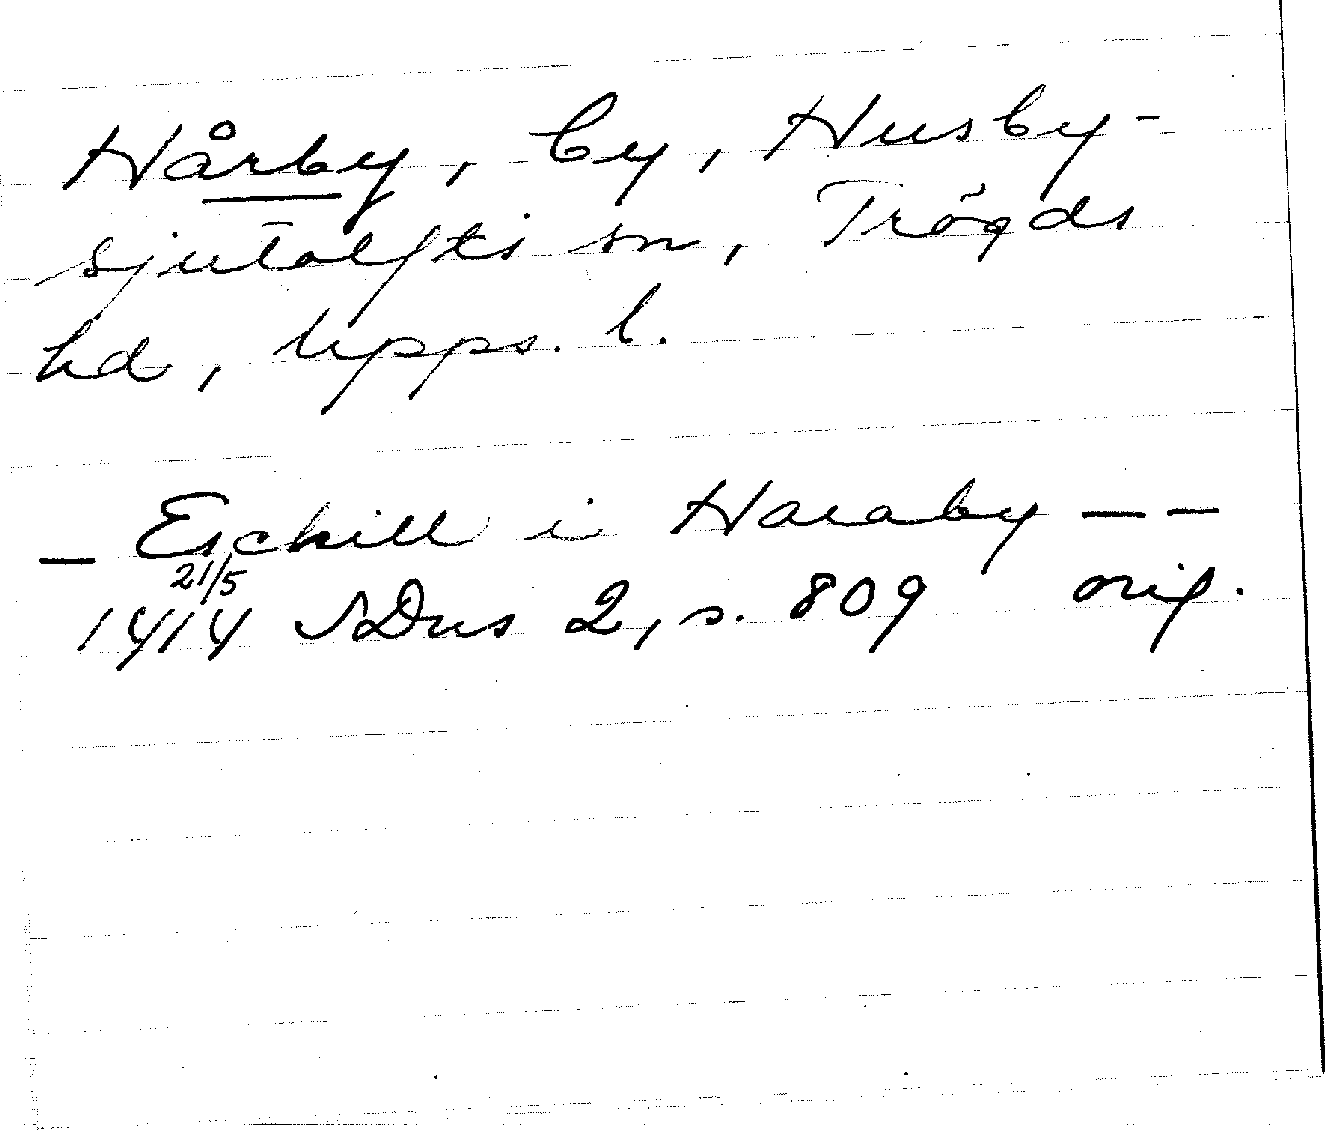 Hårby, by, Husby-
sjutolfts sn, Trögds
hd, Upps. l.
— Eschill i Haraby — —
21/5
1414 SDns 2, s. 809 orig.